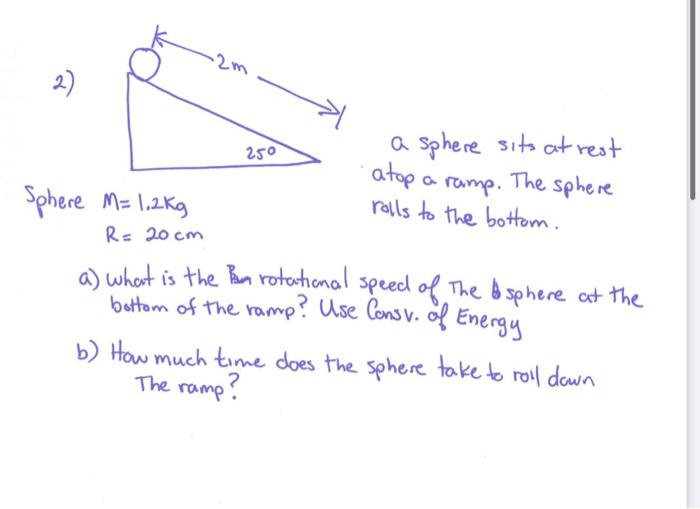 2)
2m
25°
a sphere sits at rest
atop a ramp. The sphere
rolls to the bottom.
Sphere M= 1.2Kg
R= 20cm
a) what is the rotational speed of The sphere at the
bottom of the ramp? Use Consv. of Energy
b) How much time does the sphere take to roll down
The ramp?